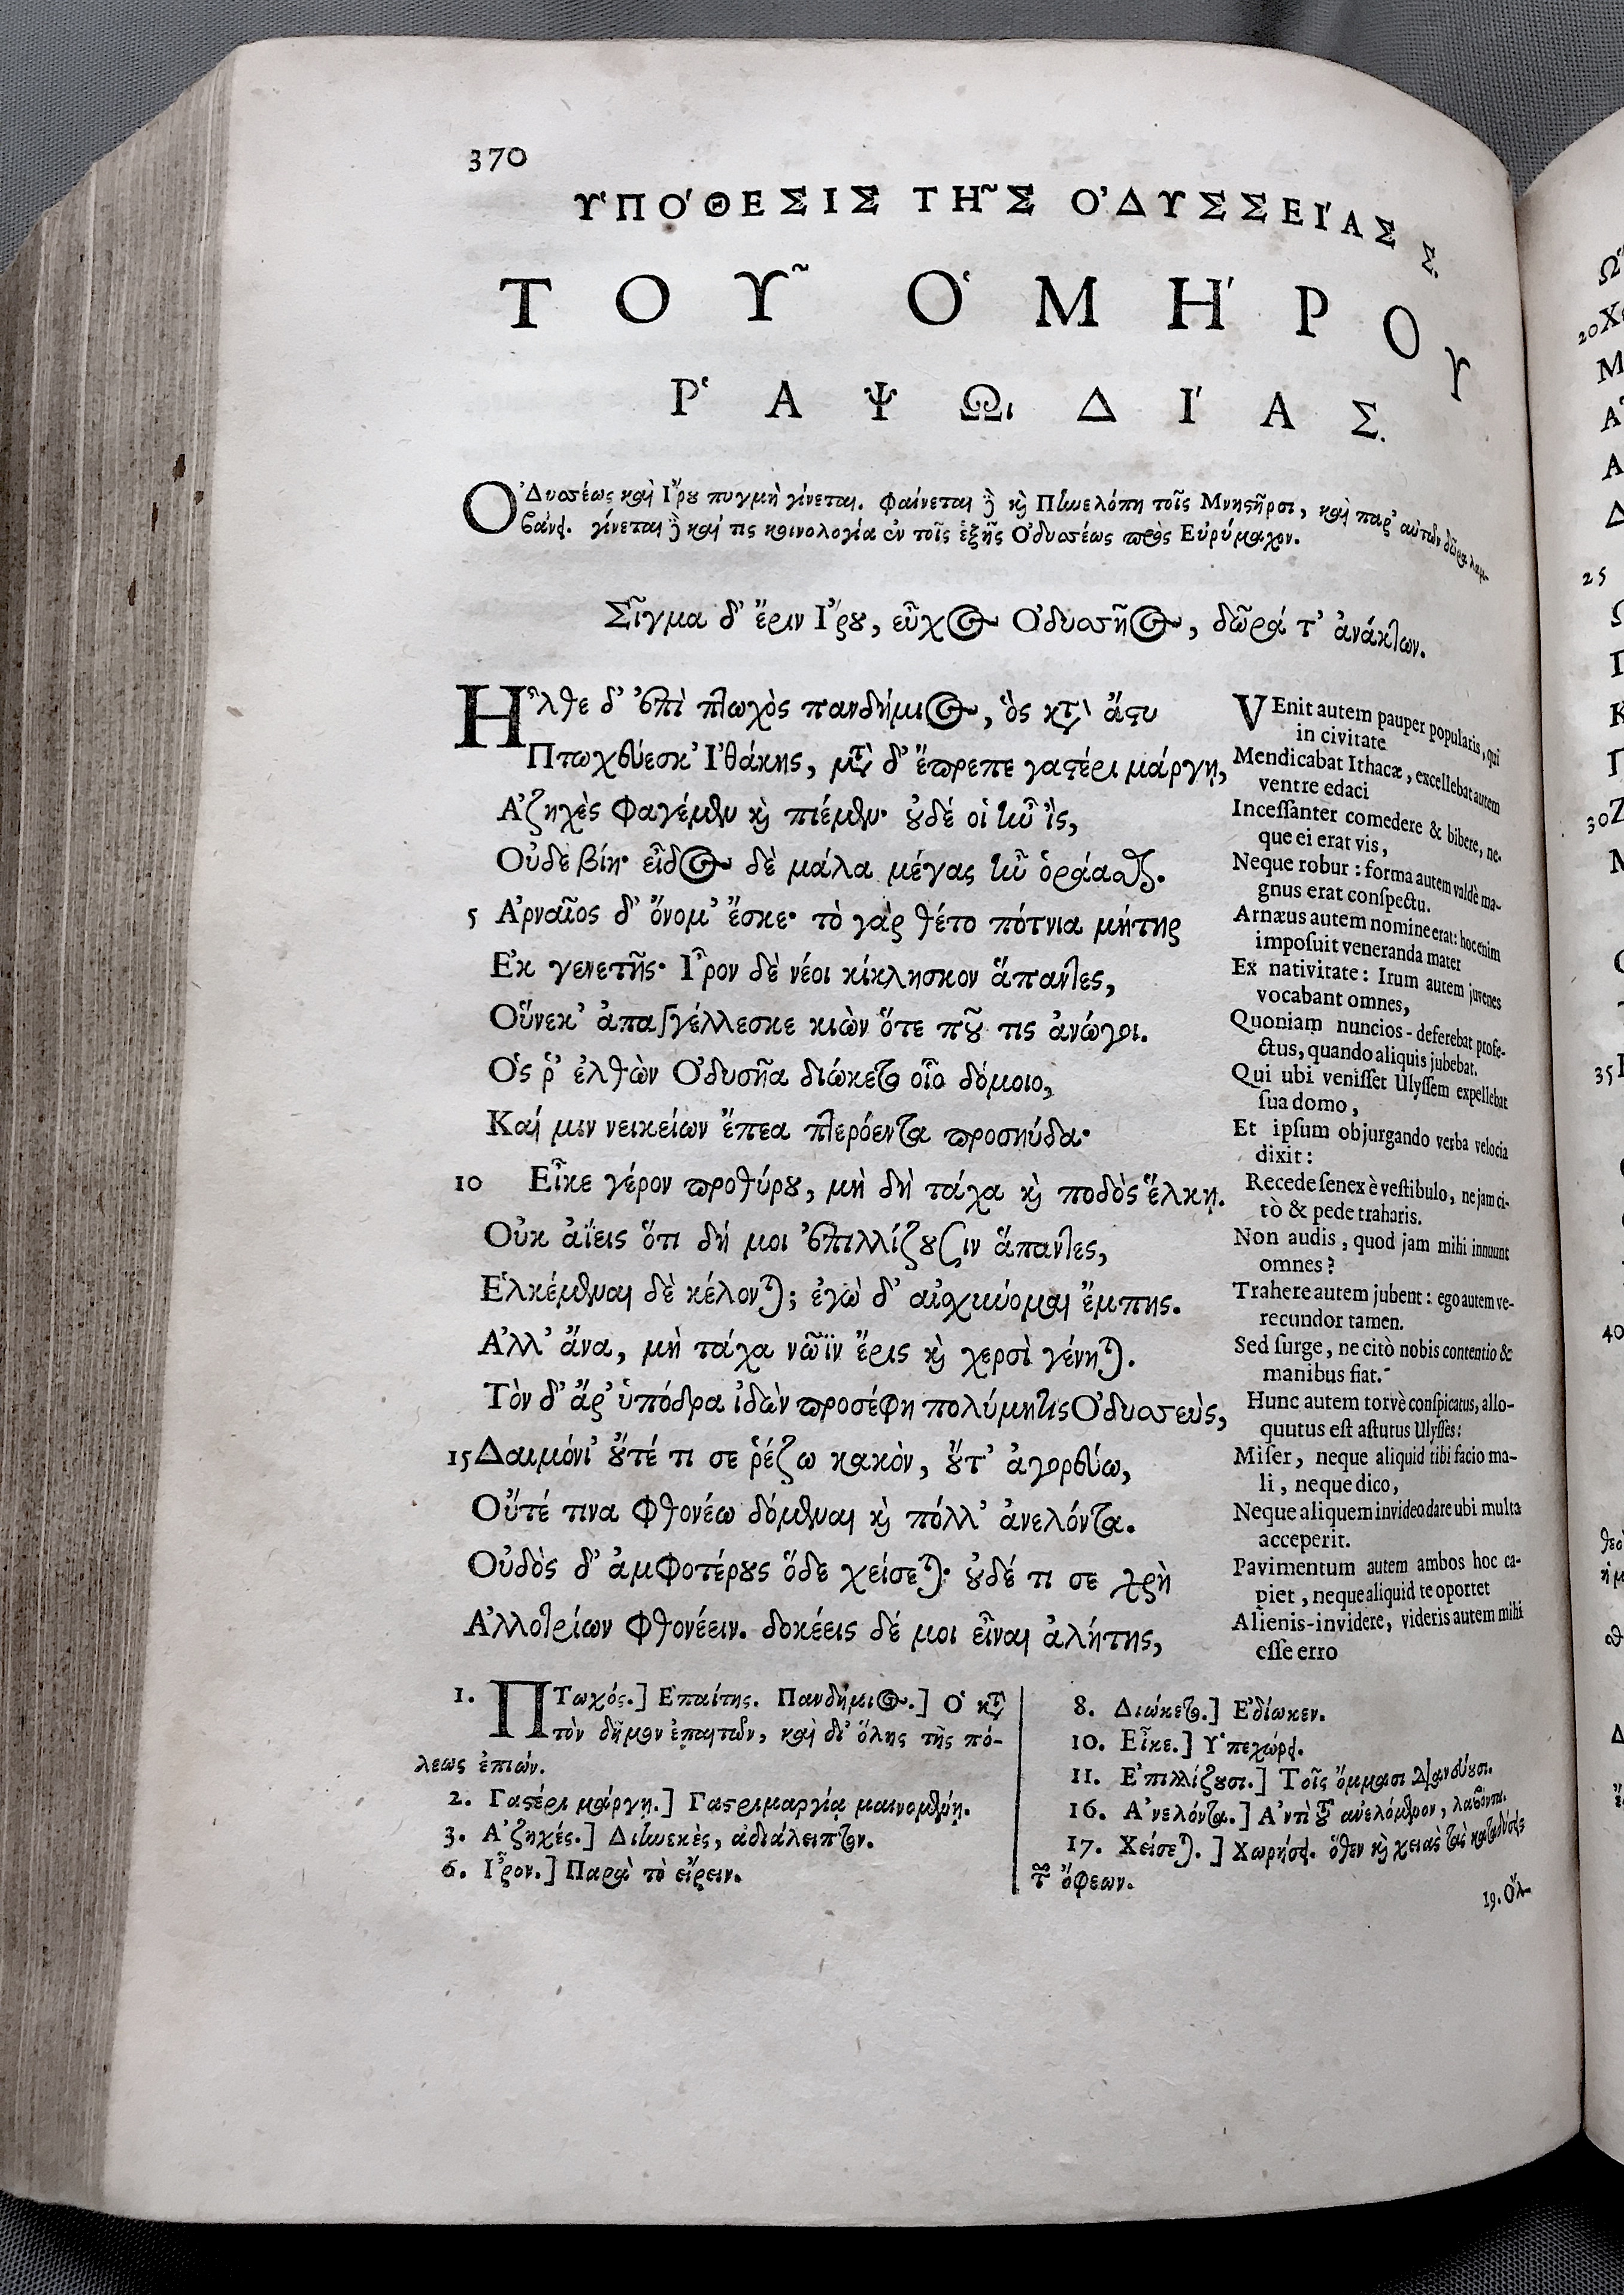 370
ὙΠΌΘΕΣΙΣ ΤΗ͂Σ ὈΔΥΣΣΕΊΑΣ Σ.
ΤΟΥ͂ ὉΜΉΡΟΥ
ῬΑΨΩΙΔΊΑΣ.
Ὀδυσσέως καὶ Ἴρου πυγμὴ γίνεται. Φαίνεται ἢ καὶ Πηνελόπη τοῖς Μνηστῆρσι, καὶ παρ' αὐτῶν δῶρα λαμ-
βάνει. γίνεται ἢ καί τις κοινολογία ἐν τοῖς ἑξῆς Ὀδυσσέως πρὸς Εὐρύμαχον.
Σῖγμα δ' ἔριν Ἴρου, εὖχος Ὀδυσσῆος, δῶρά τ' ἀνάκτων.
Ἦλθε δ' ἐπὶ πτωχὸς πανδήμιος, ὃς κατὰ ἄστυ
Πτωχεύεσκ' Ἰθάκης, μετὰ δ' ἔπρεπε γαστέρι μάργῃ,
Ἀζηχὲς φαγέμεν καὶ πιέμεν· οὐδέ οἱ ἦν ἲς,
Οὐδε βίη· εἶδος δὲ μάλα μέγας ἦν ὁράασθαι.
5 Ἀρναῖος δ' ὄνομ' ἔσκε· τὸ γὰρ θέτο πότνια μήτηρ
Ἐκ γενετῆς· Ἶρον δὲ νέοι κίκλησκον ἅπαντες,
Οὕνεκ' ἀπαγγέλλεσκε κιὼν ὅτε πού τις ἀνώγοι.
Ὅς ῥ' ἐλθὼν Ὀδυσῆα διώκετο οἷο δόμοιο,
Καί μιν νεικείων ἔπεα πτερόεντα προσηύδα·
10 Εἶκε γέρον προθύρου, μὴ δὴ τάχα καὶ ποδὸς ἕλκῃ.
Οὐκ ἀΐεις ὅτι δή μοι ἐπιλλίζουσιν ἅπαντες,
Ἑλκέμεναι δὲ κέλονται; ἐγὼ δ' αἰσχύνομαι ἔμπης.
Ἀλλ' ἄνα, μὴ τάχα νῶϊν ἔρις καὶ χερσὶ γένηται.
Τὸν δ' ἄρ' ὑπόδρα ἰδὼν προσέφη πολύμητις Ὀδυσσεὺς,
15 Δαιμόνι' οὔτέ τι σε ῥέζω κακὸν, οὔτ' ἀγορεύω,
Οὔτέ τινα φθονέω δόμεναι καὶ πόλλ' ἀνελόντα.
Οὐδὸς δ' ἀμφοτέρους ὅδε χείσεται· οὐδέ τι σε χρὴ
Ἀλλοτρίων φθονέειν. δοκέεις δέ μοι εἶναι ἀλήτης,
VEnit autem pauper popularis, qui
in civitate
Mendicabat Ithacæ, excellebat autem
ventre edaci
Incessanter comedere & bibere, ne-
que ei erat vis,
Neque robur : forma autem valdè ma-
gnus erat conspectu.
Arnæus autem nomine erat: hoc enim
imposuit veneranda mater
Ex nativitate: Irum autem juvenes
vocabant omnes,
Quoniam nuncios-deferebat profe-
ctus, quando aliquis jubebat.
Qui ubi venisset Ulyssem expellebat
sua domo,
Et ipsum objurgando verba velocia
dixit:
Recede senex è vestibulo, ne jam ci-
tò & pede traharis.
Non audis, quod jam mihi innuunt
omnes?
Trahere autem jubent: ego autem ve-
recundor tamen.
Sed surge, ne citò nobis contentio &
manibus fiat.
Hunc autem torvè conspicatus, allo-
quutus est astutus Ulysses:
Miser, neque aliquid tibi facio ma-
li, neque dico,
Neque aliquem invideo dare ubi multa
acceperit.
Pavimentum autem ambos hoc ca-
piet, neque aliquid te oportet
Alienis-invidere, videris autem mihi
esse erro
1. Πτωχός.] Ἐπαίτης. Πανδήμιος.] Ὁ κατὰ
τὸν δῆμον ἐπαιτῶν, καὶ δι' ὅλης τῆς πό-
λεως ἐπιών.
2. Γαστέρι μάργῃ.] Γαστριμαργίᾳ μαινομένῃ.
3. Ἀζηχές.] Διηνεκὲς, ἀδιάλειπτον.
6. Ἶρον.] Παρὰ τὸ εἴρειν.
8. Διώκετο.] Ἐδίωκεν.
10. Εἶκε.] Ὑπεχώρει.
11. Ἐπιλλίζουσι.] Τοῖς ὄμμασι διανεύουσι.
16. Ἀνελόντα.] Ἀντὶ τοῦ ἀνελόμενον, λαβόντα.
17. Χείσεται.] Χωρήσει. ὅθεν καὶ χειαὶ τὰς καταδύσεις
τῶν ὄφεων.
19. Ὄλ-